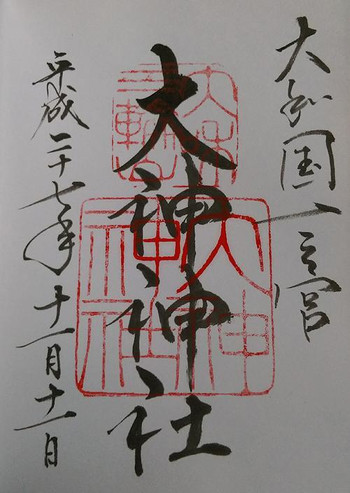 大和国一之宮
大神神社
平成二十七年十一月十一日
三輪
大神
神社